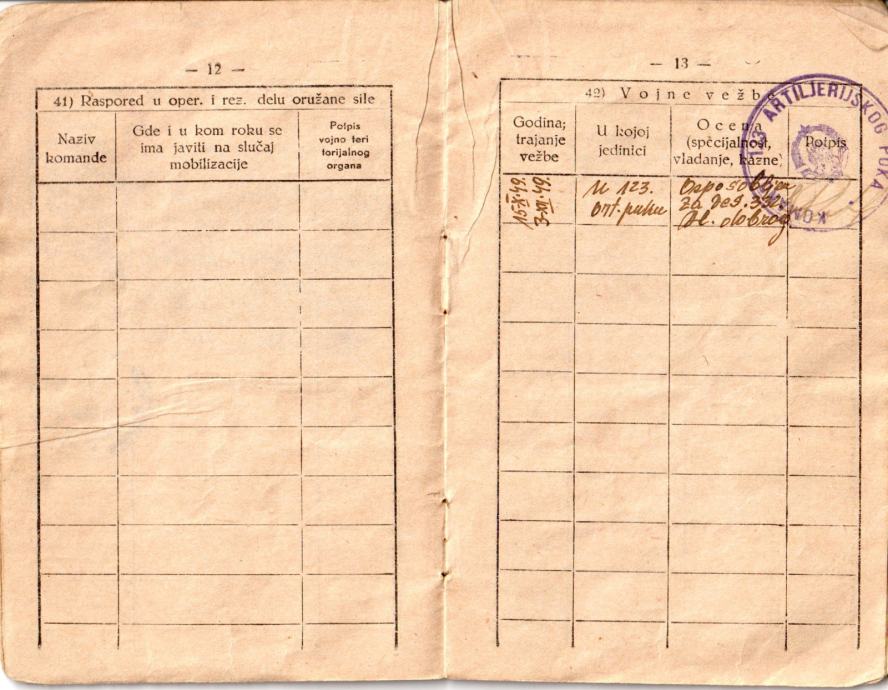 — 12 —
41) Raspored u oper. i rez. delu oružane sile
Naziv
komande
Gde i u kom roku se
ima javiti na slučaj
mobilizacije
Potpis
vojno teri
torijalnog
organa
— 13 —
42) Vojne vežb
Godina;
trajanje
vežbe
U kojoj
jedinici
Ocena
(specijalnost,
vladanje, kazne)
Potpis
123 ARTILJERIJSKOG PUKA
15-X-49.
U 123.
art. puku
Osposobljen
za
dobrog